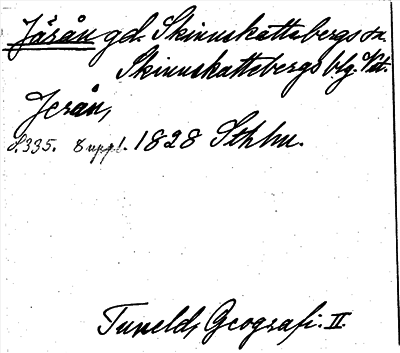 Jäsån gd. Skinnskattebergs sn.
Skinnskattebergs blg. Vst.
Jerån,
S. 335. 8 uppl. 1828 Sthlm.
Tuneld, Geografi. II.